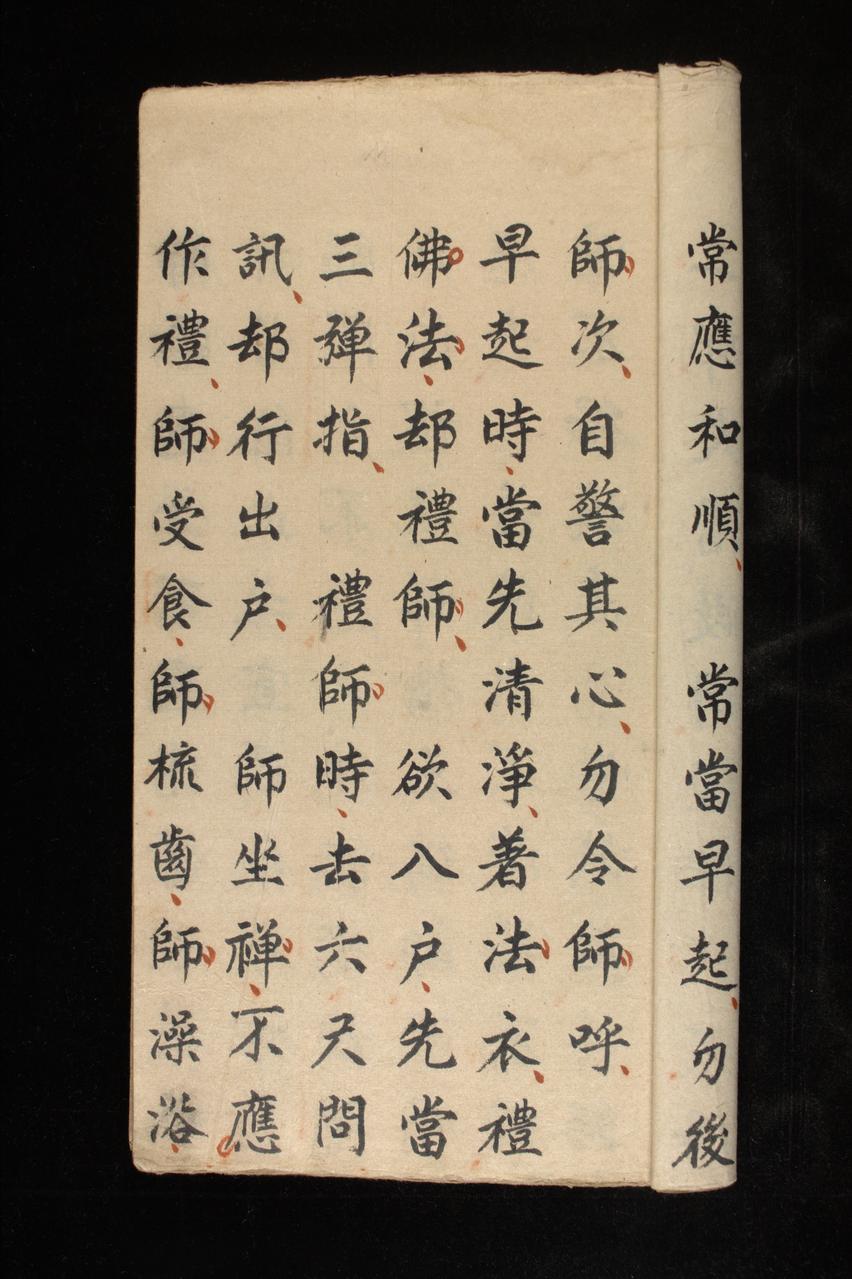 常應和順 常當早起勿後
師次自警其心勿令師呼
早起時當先清淨著法衣禮
佛法却禮師 欲入户先當
三彈指 禮師時去六尺問
訊却行出户 師坐禅不應
作禮師受食師梳齒師澡浴